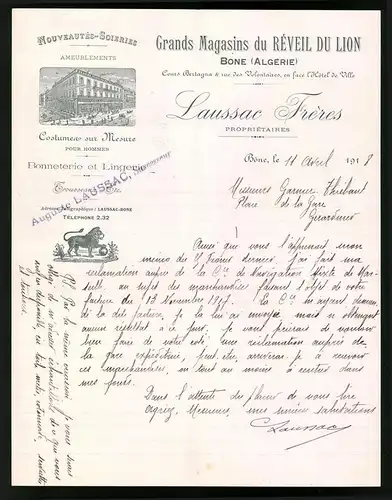 Nouveautés-Soieries
AMEUBLEMENTS
Costumes sur Mesure
POUR HOMMES
Bonneterie et Lingerie
Trousseaux, Etc.
Adresse Télégraphique: LAUSSAC-BONE
TÉLÉPHONE 2.32
Auguste LAUSSAC, Successeur
Grands Magasins du RÉVEIL DU LION
BONE (ALGÉRIE)
Cours Bertagna & rue des Volontaires, en face l'Hôtel de Ville
Laussac Frères
PROPRIÉTAIRES
Bone, le 11 Avril 1918
Messieurs Garnier Thiébaut
Place de la Gare
Gérardmer
Ainsi que vous l'apprenait mon
mémo du février dernier, j'ai fait ma
réclamation auprès de la Cie de Navigation Mixte de Mar-
seille, au sujet des marchandises faisant l'objet de votre
facture du 13 Novembre 1917. La Cie m'ayant demandé
la dite facture, je la lui ai envoyée mais n'obtenant
aucun résultat à ce jour, je vous prierais de vouloir
bien faire de votre côté, une réclamation auprès de
la gare expéditrice, peut-être arriverai-je à recevoir
ces marchandises, ou tout au moins à rentrer dans
mes fonds.
Dans l'attente du plaisir de vous lire
agréez, Messieurs, mes sincères salutations
Laussac
P.S. Par la même occasion, je vous serais
obligé de m'envoyer échantillons de ce que vous
auriez disponible, en